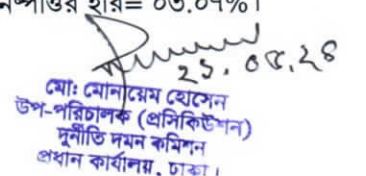 হার= ০৩.০৭%।
২১.০৫.২৪
মো: মোনায়েম হোসেন
উপ-পরিচালক (প্রসিকিউশন)
দুর্নীতি দমন কমিশন
প্রধান কার্যালয়, ঢাকা।